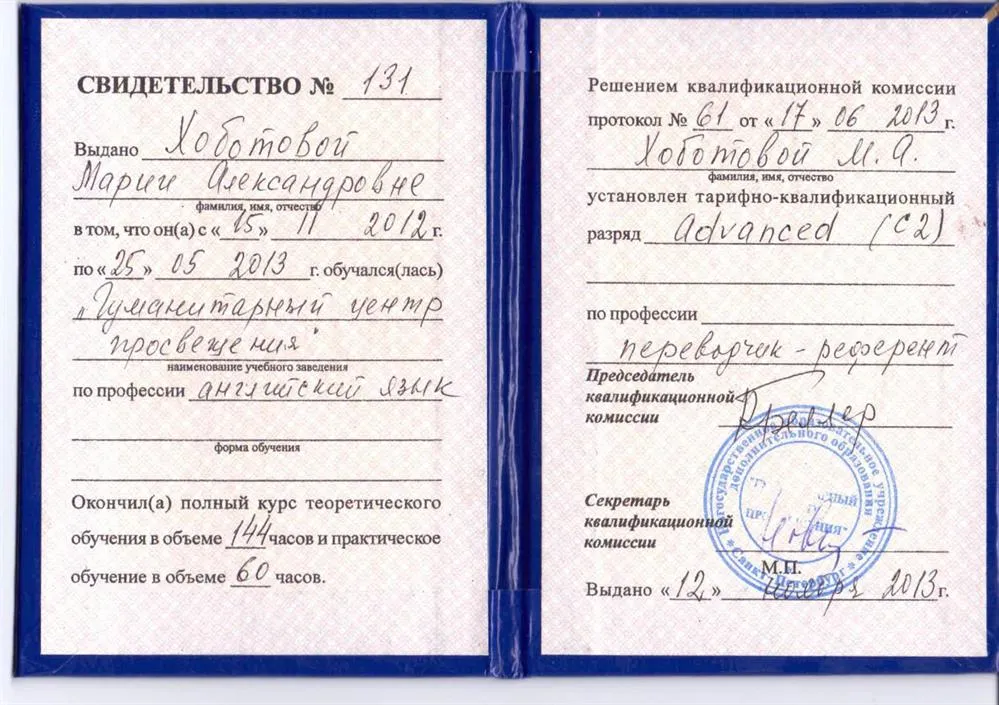 СВИДЕТЕЛЬСТВО № 131
Выдано Хоботовой
Марии Александровне
фамилия, имя, отчество
в том, что он(а) с «15» 11 2012г.
по «25» 05 2013 г. обучался(лась)
"Гуманитарный центр
просвещения"
наименование учебного заведения
по профессии английский язык
форма обучения
Окончил(а) полный курс теоретического
обучения в объеме 144 часов и практическое
обучение в объеме 60 часов.
Решением квалификационной комиссии
протокол № 61 от «17» 06 2013г.
Хоботовой М. А.
фамилия, имя, отчество
установлен тарифно-квалификационный
разряд Advanced (C2)
по профессии
переводчик-референт
Председатель
квалификационной
комиссии
Негосударственное образовательное учреждение
дополнительного образования
Санкт-Петербург
Секретарь
квалификационной
комиссии
М.П.
Выдано «12» ноября 2013г.